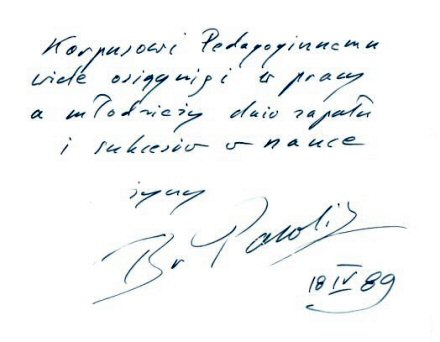 Korpusowi Pedagogicznemu
wiele osiągnięć w pracy
a młodzieży dużo zapału
i sukcesów w nauce
życzy
Br
18 IV 89